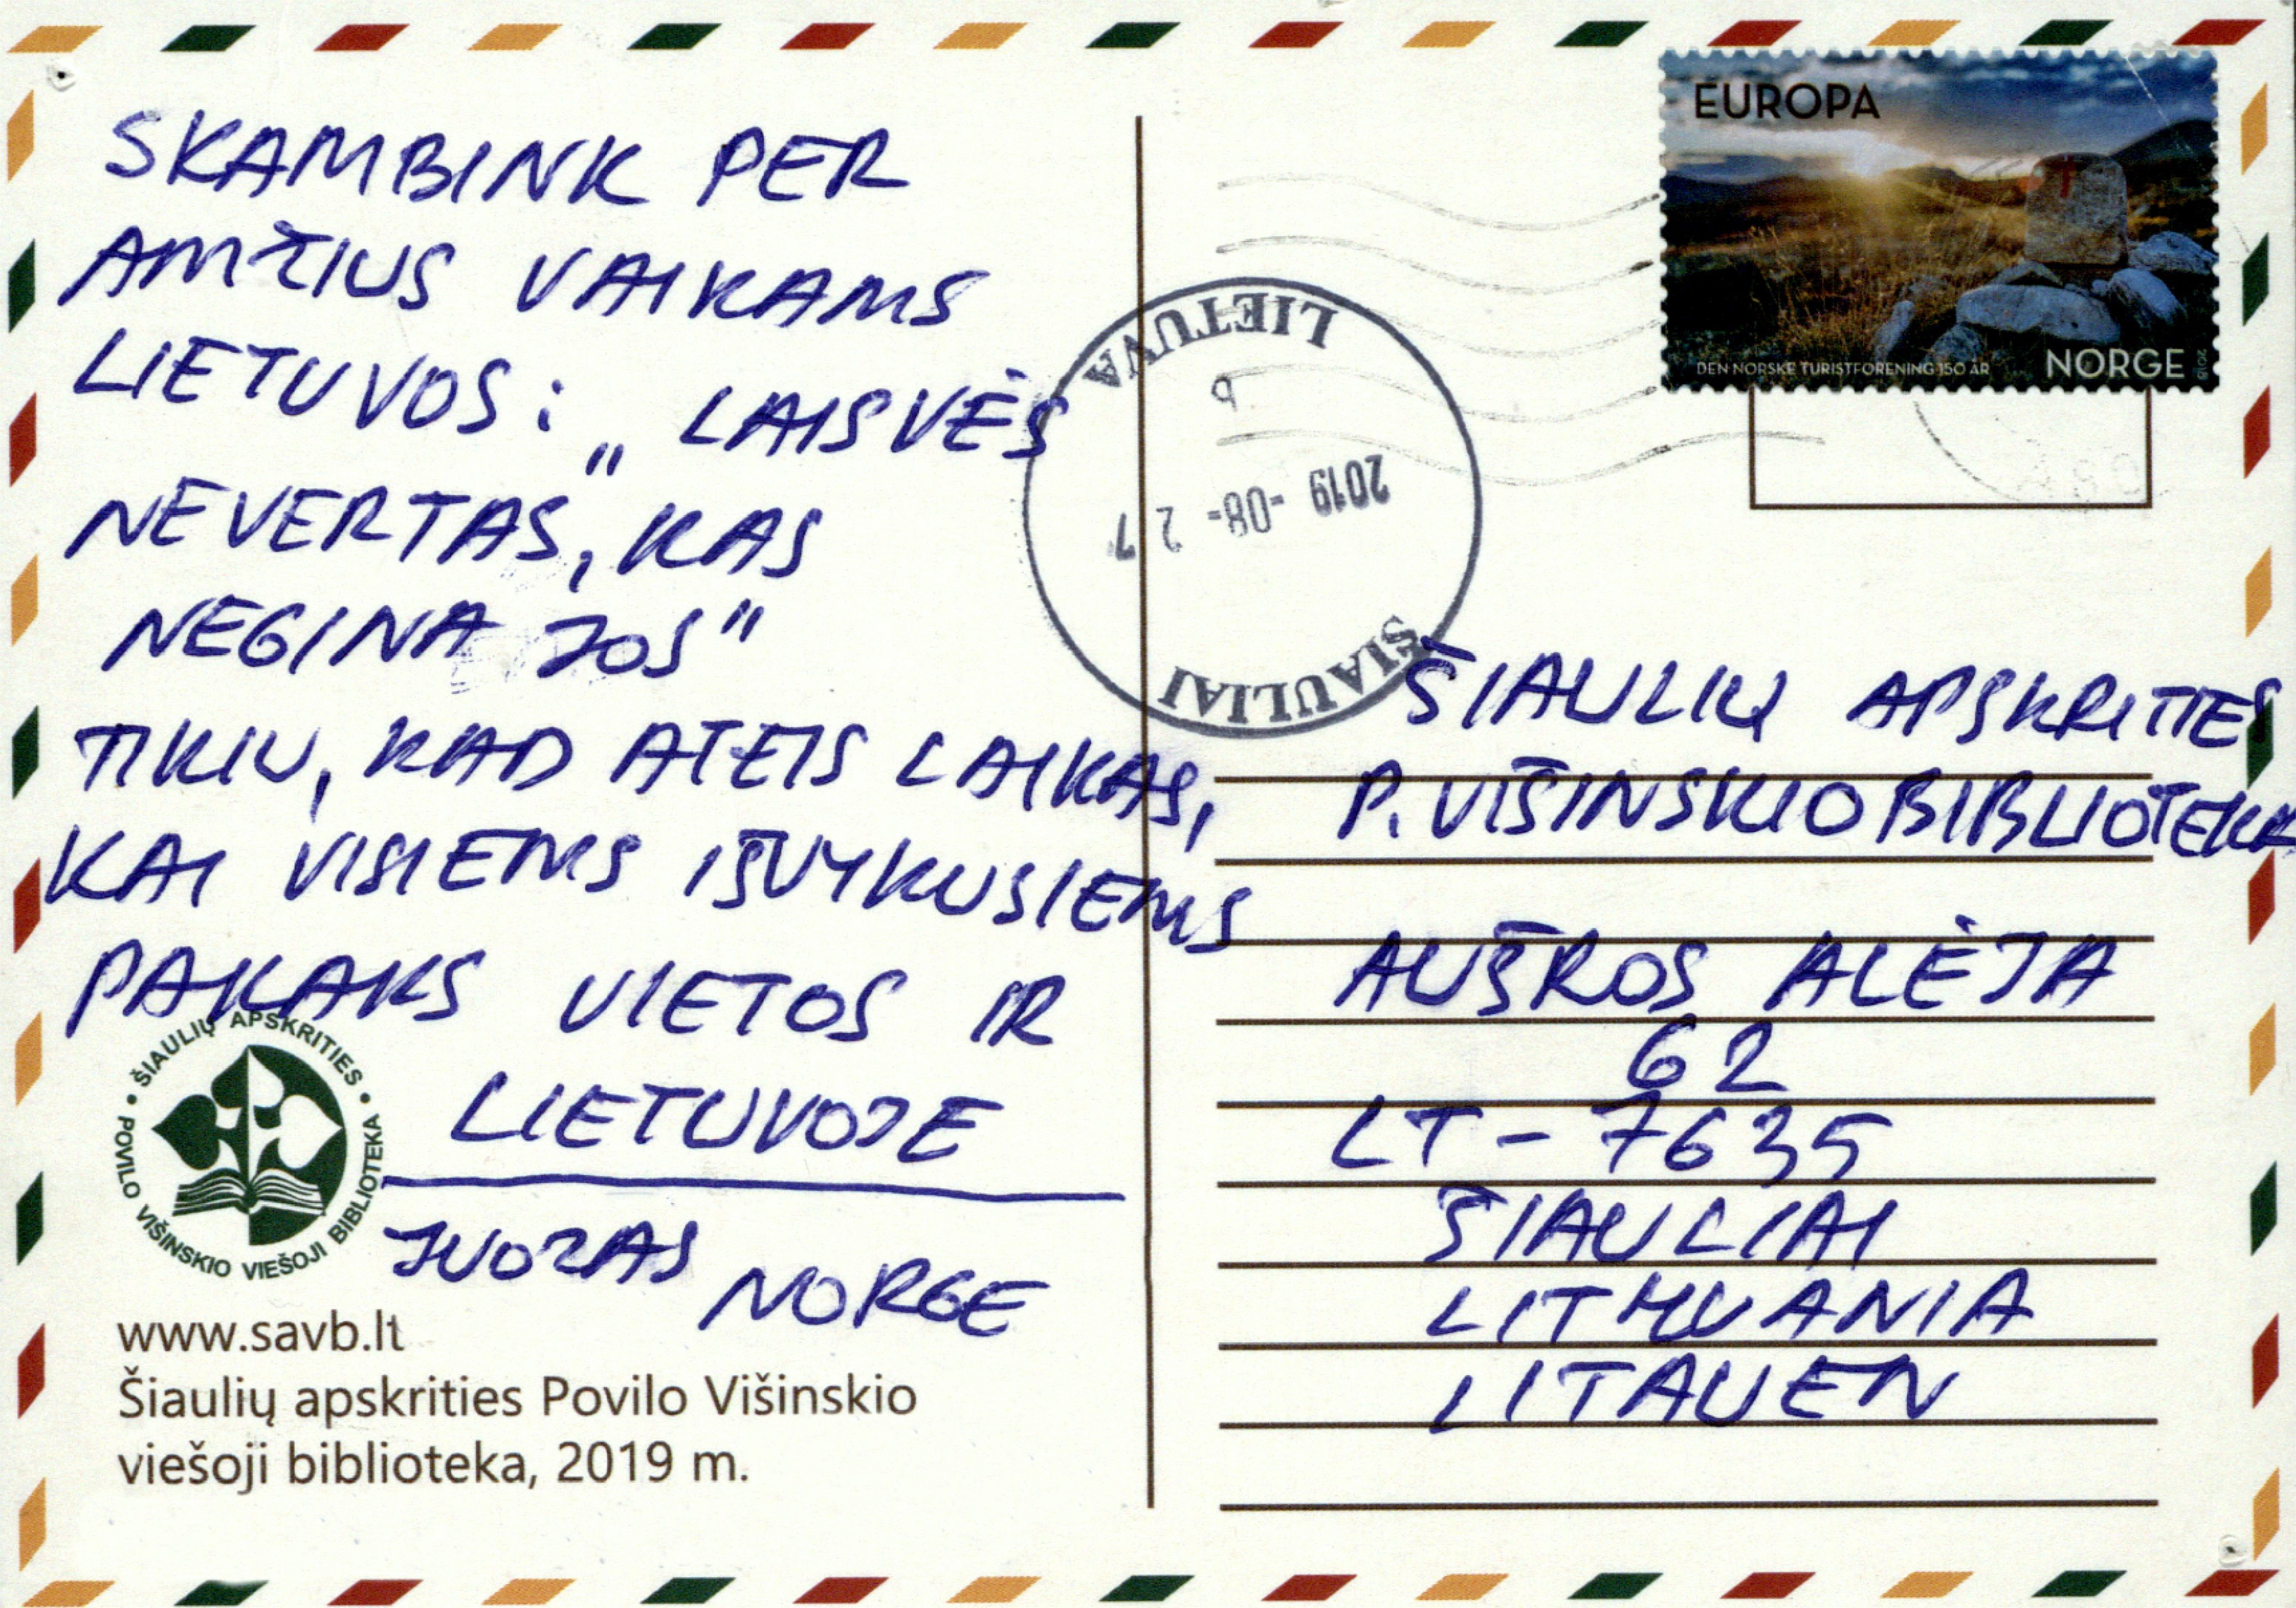 SKAMBINK PER
AMŽIUS VAIKAMS
LIETUVOS: „LAISVĖS
NEVERTAS, KAS
NEGINA JOS"
TIKIU, KAD ATEIS LAIKAS,
KAI VISIEMS IŠVYKUSIEMS
PAKAKS VIETOS IR
LIETUVOJE
JUOZAS NORGE
ŠIAULIŲ APSKRITIES • POVILO VIŠINSKIO VIEŠOJI BIBLIOTEKA •
www.savb.lt
Šiaulių apskrities Povilo Višinskio
viešoji biblioteka, 2019 m.
EUROPA
DEN NORSKE TURISTFORENING 150 ÅR
NORGE
2018
LIETUVA
b
2019 -08- 27
ŠIAULIAI
ŠIAULIŲ APSKRITIES
P. VIŠINSKIO BIBLIOTEKA
AUŠROS ALĖJA
62
LT-7635
ŠIAULIAI
LITHUANIA
LITAUEN